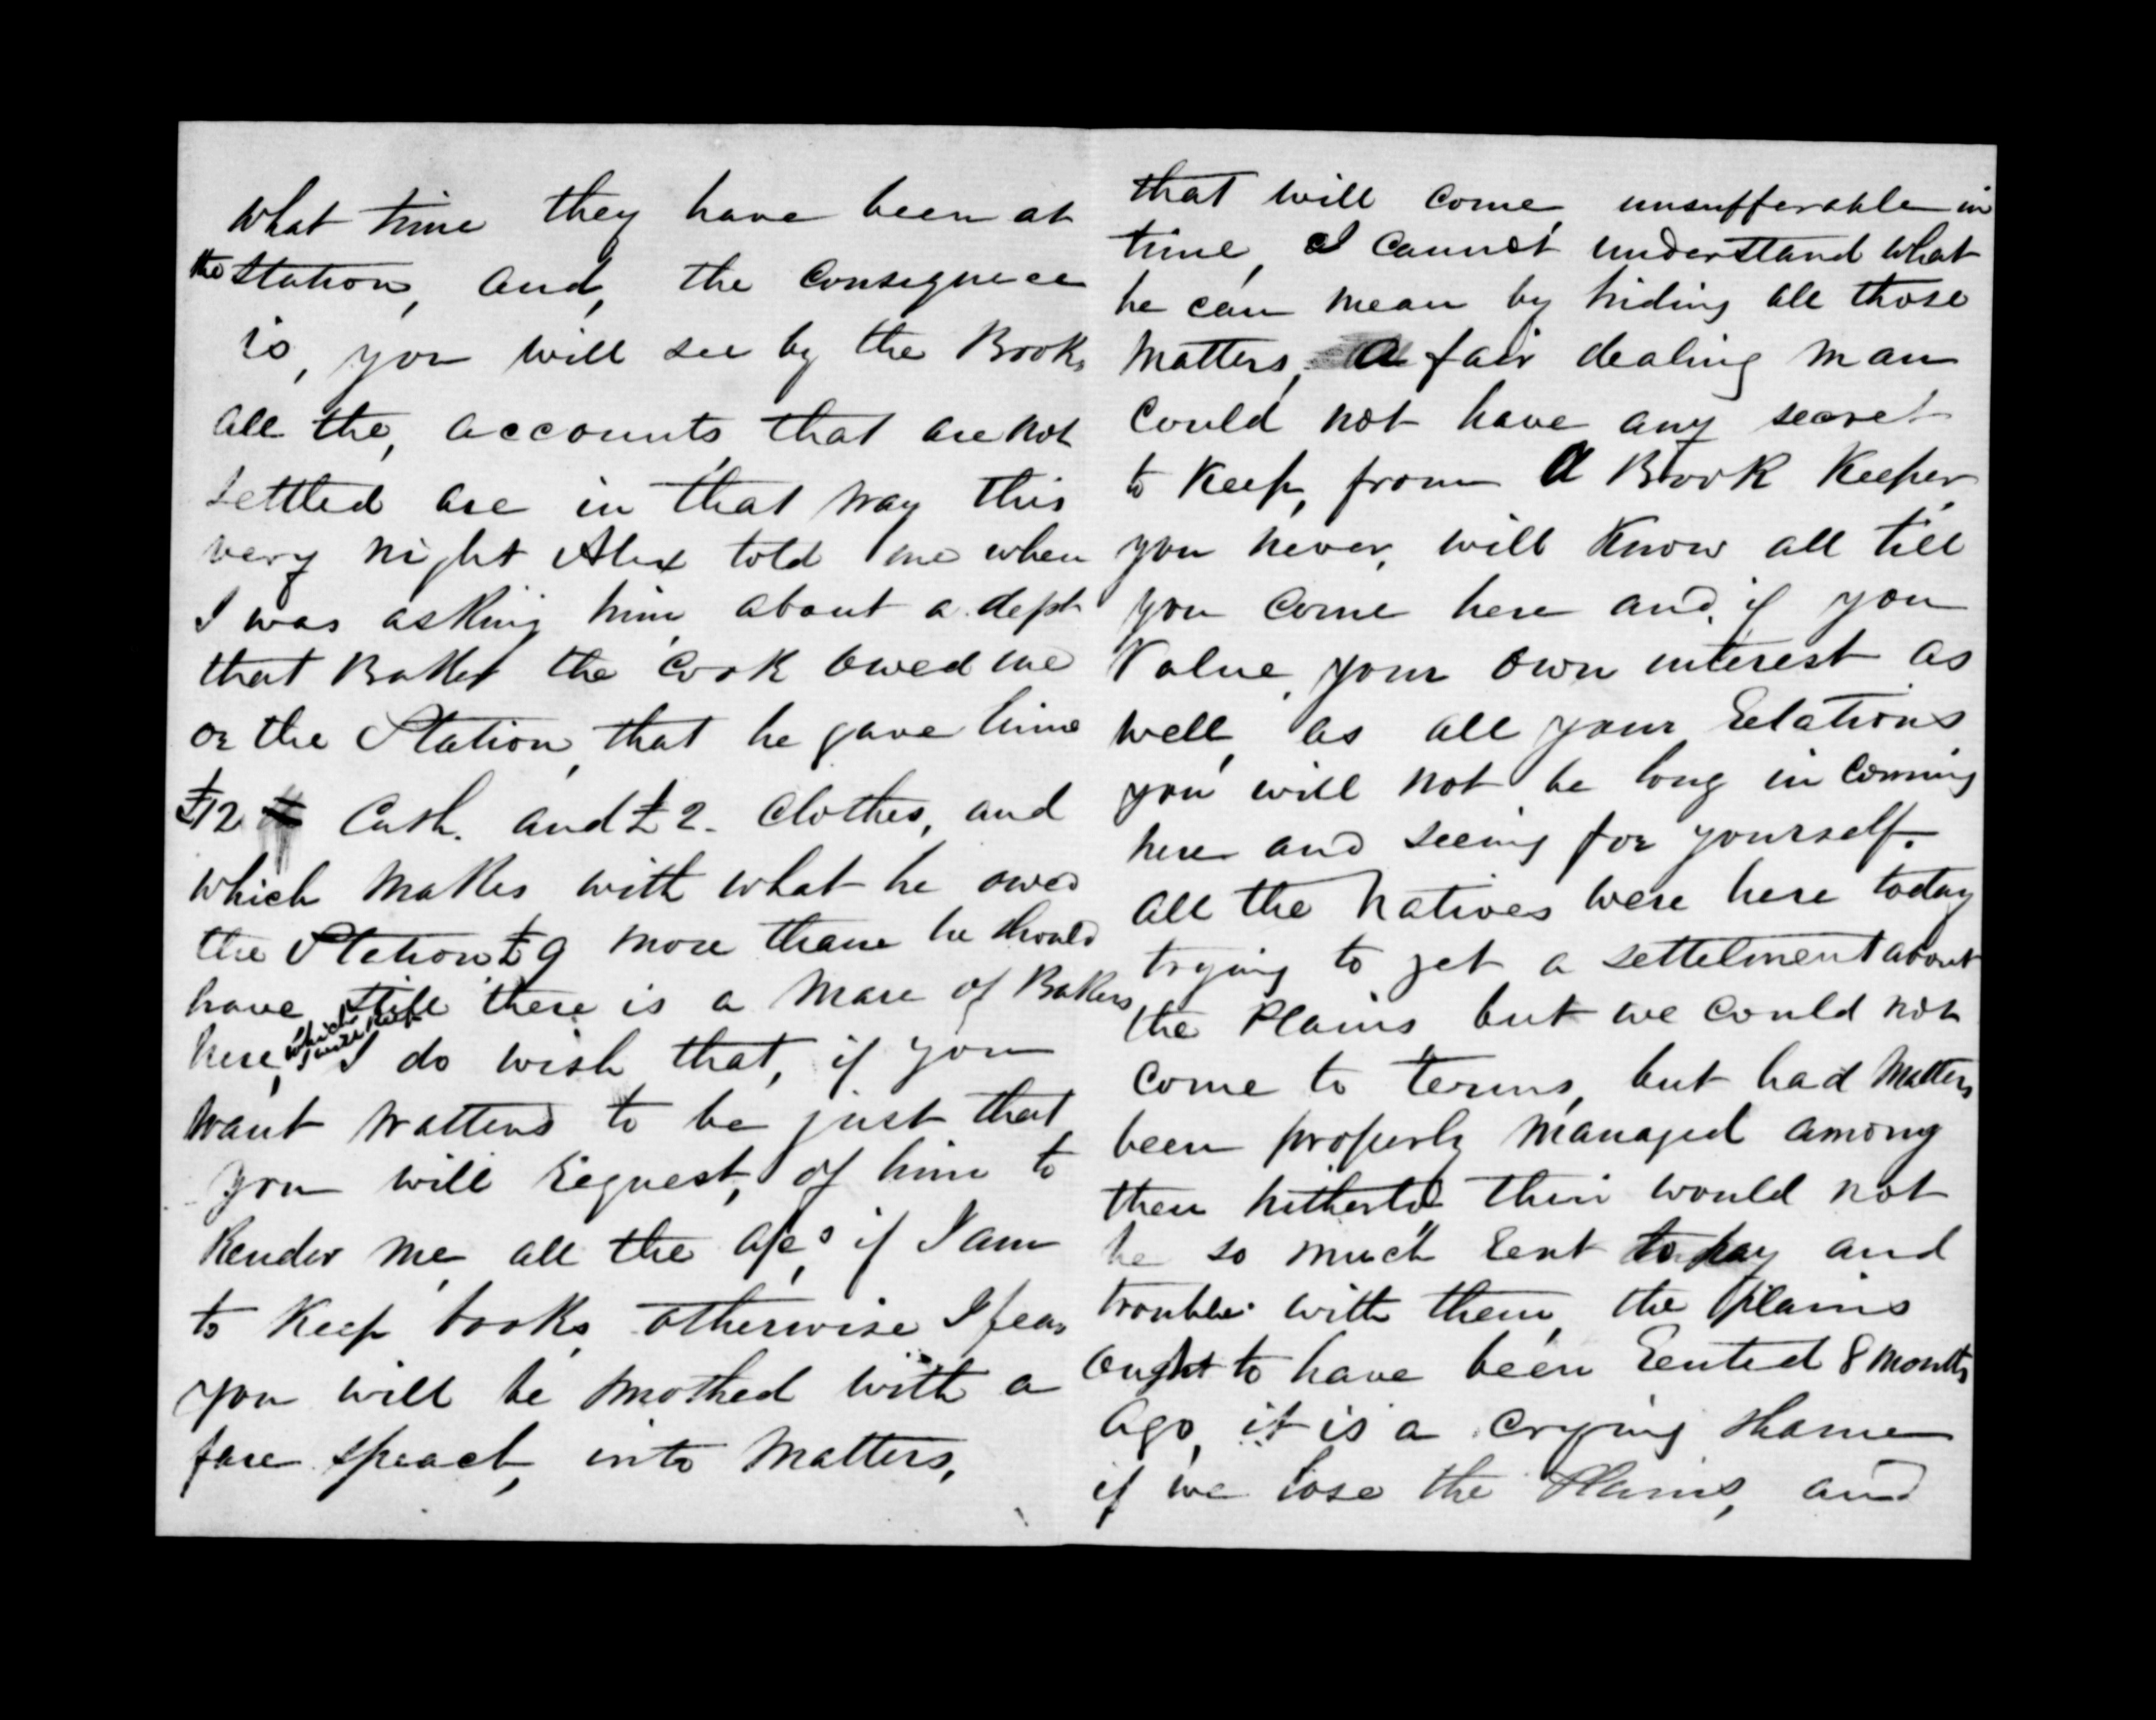 what time they have been at
the Station, and, the Consequence
is, you will see by the Books
all the, accounts, that are not
settled are in that way this
very night Alex told me when
I was asking him about a dept
that Baker the Cook owed me
or the Station, that he gave him
£12 Cash. and £2. Clothes, and
which makes with what he owed
the Station £9 more thane he should
have still there is a Mare of Bakers
here, which I will keep I do wish that, if you
want matters to be just that
you will request, of him to
Render me all the a/cs, if I am
to Keep books, otherwise I fear
you will be mothed with a
fare speach, into Matters,
that will come, unsufferable in
time, I cannot understand what
he can mean by hiding all those
Matters, A fair dealing man
Could not have any secret
to Keep, from A Book Keeper,
you never, will Know all till
you Come here and, if you
Value, your own interest as
well, as all your relations
you will not be long in Coming
here and seeing for yourself.
All the Natives were here today
trying to get a settelment about
the Plains but we could not
Come to terms, but had Matters
been properly Managed among
them hitherto their would not
be so much rent to pay and
trouble with them, the plains
ought to have been rented 8 months
ago, it is a crying shame
if we lose the Plains, and